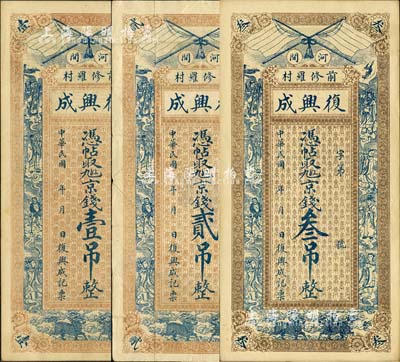 河間
前修羅村
興成
憑帖取旭京錢壹吊整
中華民國 年 月 日復興成記票
河間
前修羅村
興成
憑帖取旭京錢貳吊整
中華民國 年 月 日復興成記票
河間
前修羅村
復興成
字第 號
憑帖取旭京錢叁吊整
中華民國 年 月 日復興成記票